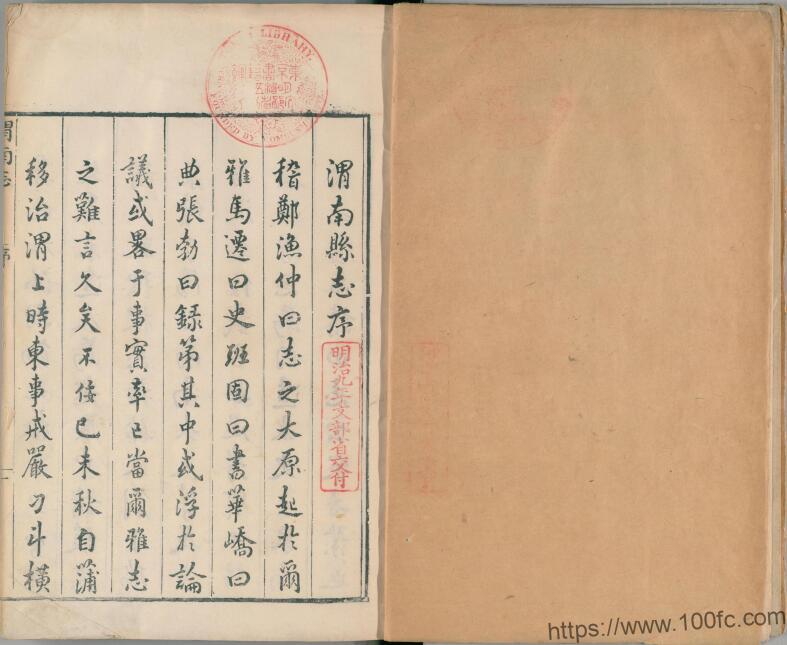 渭南縣志序
稽鄭漁仲曰志之大原起於爾
雅馬遷曰史班固曰書華嶠曰
典張勃曰錄第其中或浮於論
議或畧于事實率已當爾雅志
之難言久矣不佞己未秋自蒲
移治渭上時東事戒嚴刁斗橫
渭南志
序
明治九年文部省交付
LIBRARY.
https://www.100fc.com